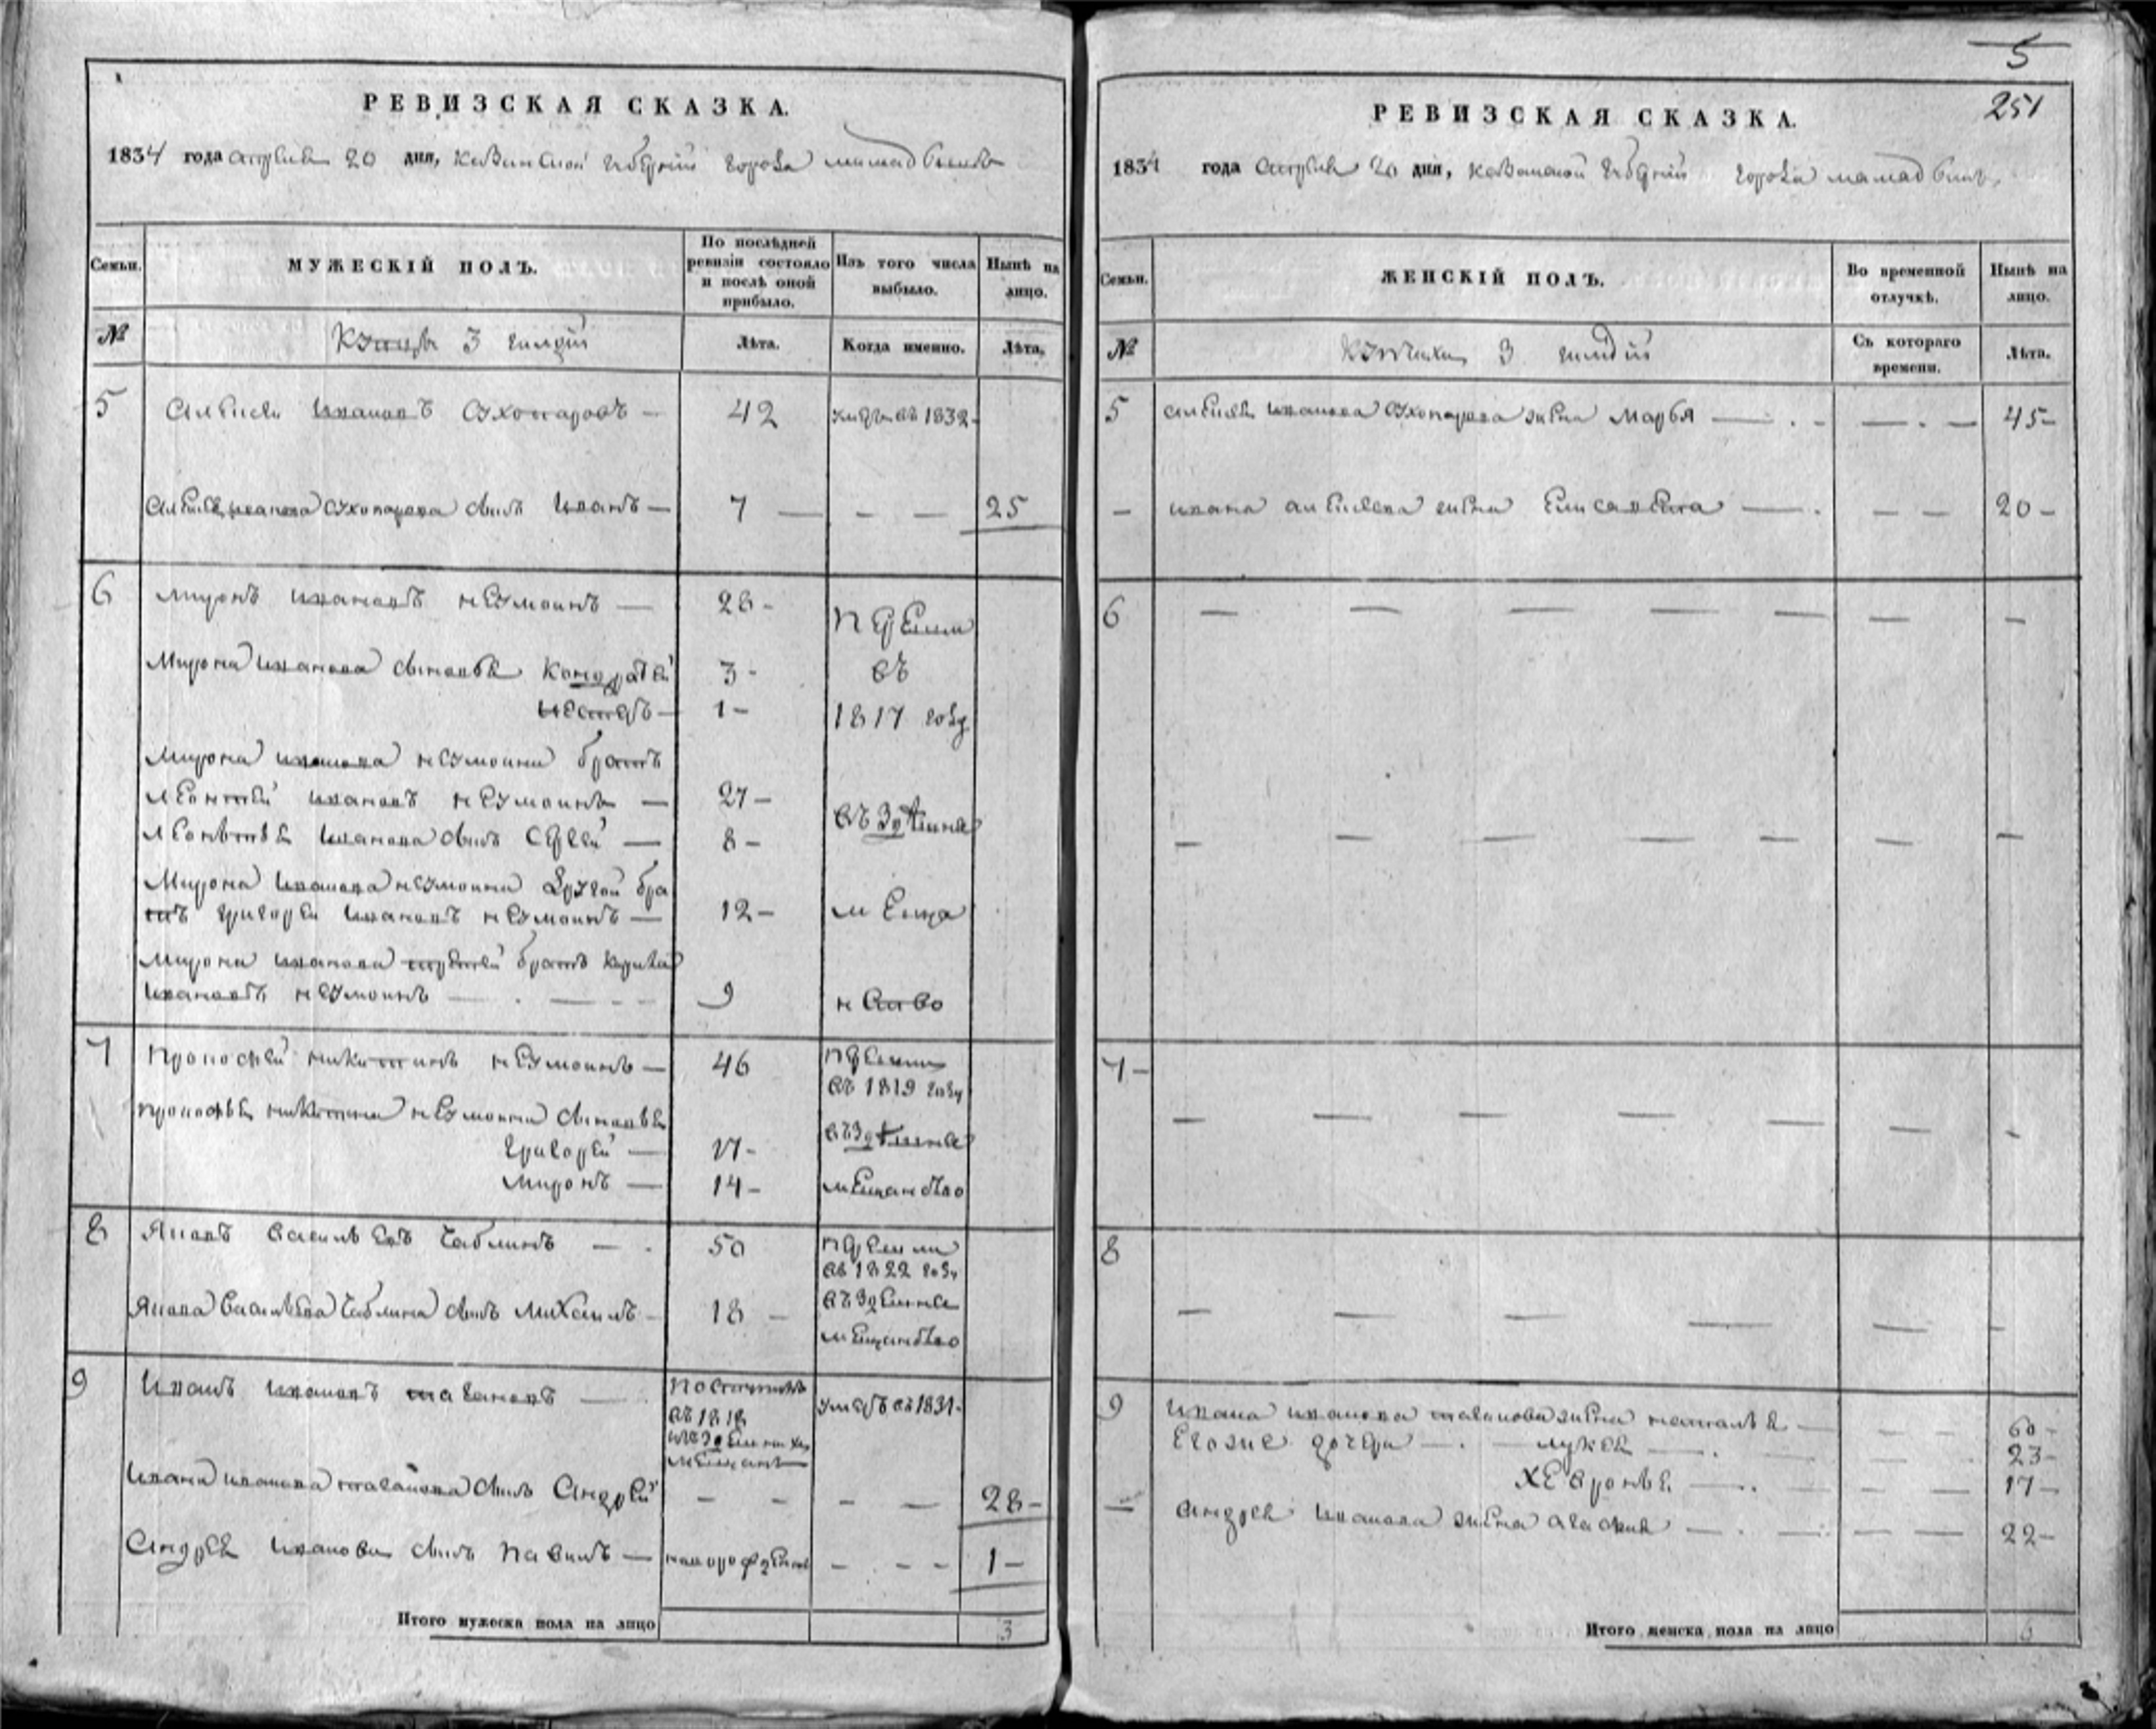 РЕВИЗСКАЯ СКАЗКА.
1834 года апреля 20 дня, казанской губернии города мамадыша
Семьи.
МУЖЕСКІЙ ПОЛЪ.
По послѣдней ревизіи состояло и послѣ оной прибыло.
Изъ того числа выбыло.
Нынѣ на лицо.
№
Купцы 3 гилдии
Лѣта.
Когда именно.
Лѣта.
5 Алексеи ивановъ сухопаровъ — 42 умеръ въ 1832-
Алексея иванова сухопарова сынъ иванъ — 7 — — — 25
6 Миронъ ивановъ неумоинъ — 28- перешли
Мирона иванова сыновья Кондратей 3- въ
Нестеръ — 1- 1817 году
Мирона иванова неумоина братъ
леонтей ивановъ неумоинъ — 27-
леонтья иванова сынъ Сергей — 8- въ здешнея
Мирона иванова неумоина другой бра
тъ григорей ивановъ неумоинъ — 12- меща
Мирона иванова третей братъ
ивановъ неумоинъ — 9 нство
7 Прокофей никитинъ неумоинъ — 46 перешли въ 1819 году
прокофья никитина неумоина сыновья
григорей — 17- въ здешнея
миронъ — 14- мещанство
8 Яковъ васильевъ чаблинъ — 50 перешли въ 1822 году
Якова васильева чаблина сынъ михаилъ - 18 — въ здешнея мещанство
9 иванъ ивановъ тагановъ — поступилъ въ 1818 изъ здешнихъ мещанъ умеръ въ 1831-
ивана иванова таганова сынъ Андрей — — — — 28-
Андрея иванова сынъ павилъ — новорожденъ — — — 1-
Итого мужеска пола на лицо 3
5
251
РЕВИЗСКАЯ СКАЗКА.
1834 года апреля 20 дня, казанской губернии города мамадыша
Семьи.
ЖЕНСКІЙ ПОЛЪ.
Во временной отлучкѣ.
Нынѣ на лицо.
№
купчихи 3 гилдии
Съ котораго времени.
Лѣта.
5 алексея иванова сухопарова жена марья — — . — 45-
— ивана алексеева жена елисавета — — — 20-
6 — — — — — — —
— — — — — — —
7 -
— — — — — — -
8
— — — — — -
9 ивана иванова таганова жена наталья — — — 60-
Егоже дочери — лукея — — — 23-
хевронья — — — 17-
— андрея иванова жена агафия — — — 22-
Итого женска пола на лицо